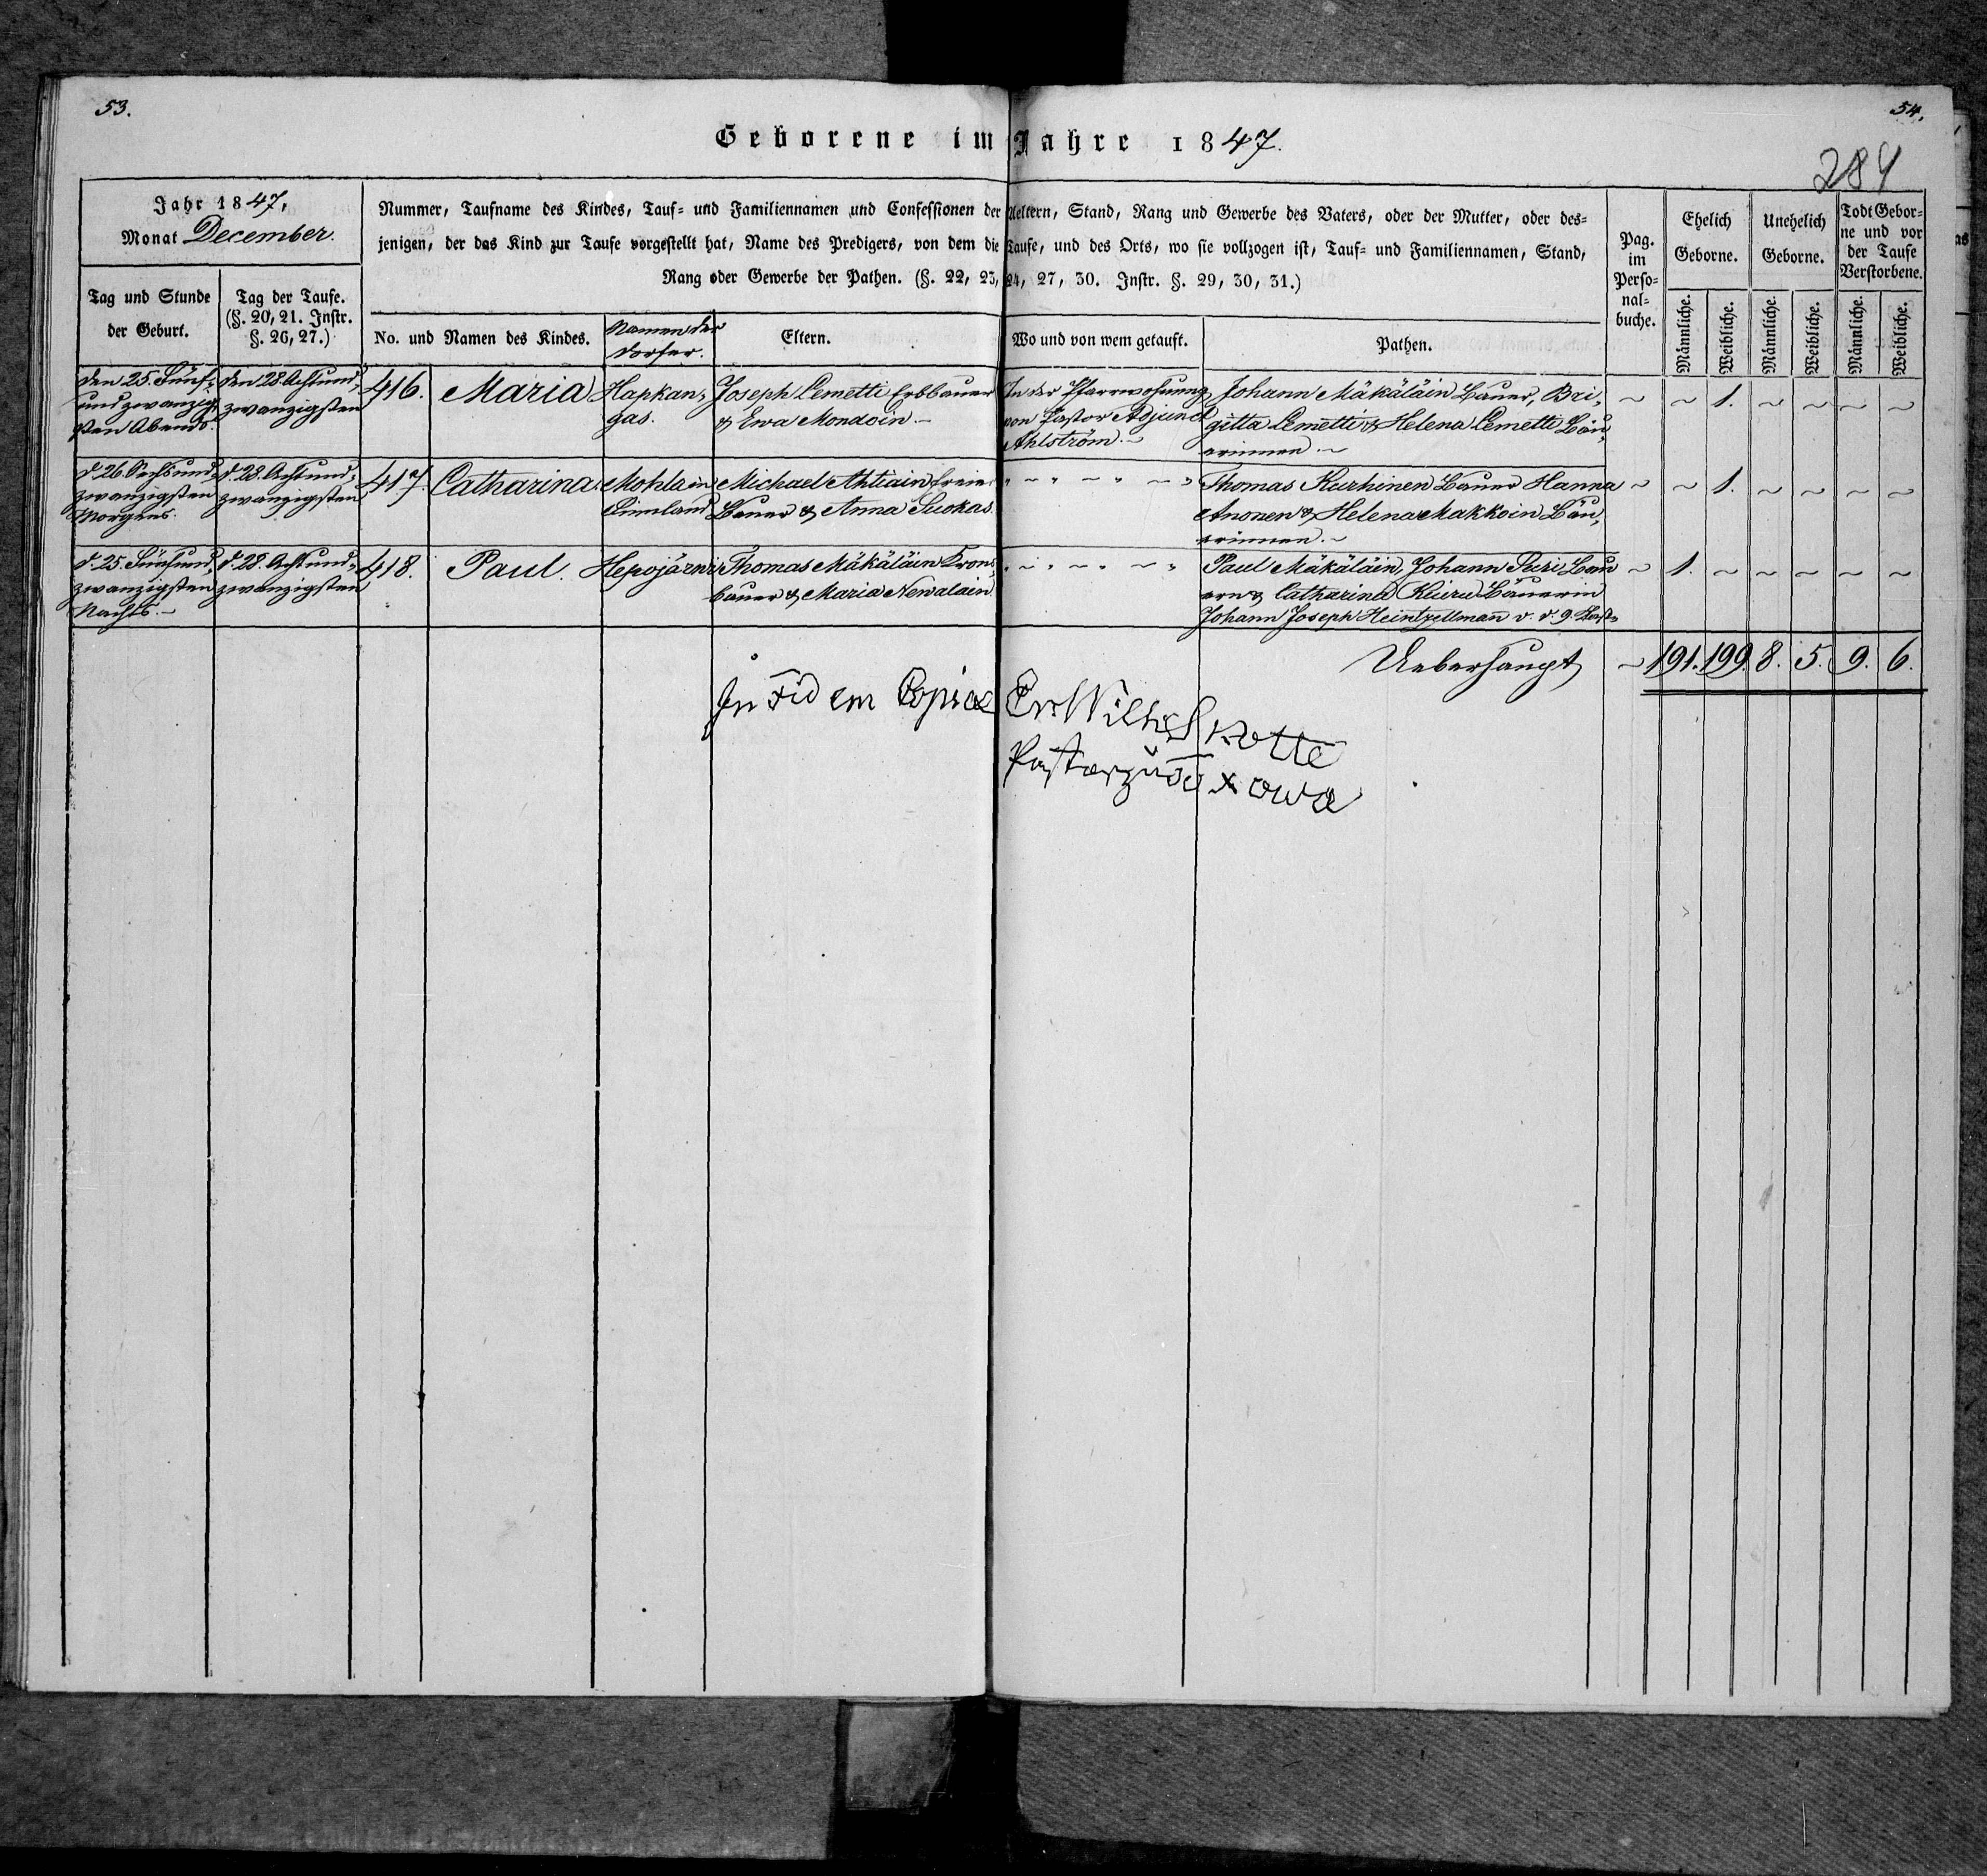 53.
54.
Geborene im Jahre 1847.
284
Jahr 1847,
Monat December.
Nummer, Taufname des Kindes, Tauf- und Familiennamen und Confessionen der Aeltern, Stand, Rang und Gewerbe des Vaters, oder der Mutter, oder des-
jenigen, der das Kind zur Taufe vorgestellt hat, Name des Predigers, von dem die Taufe, und des Orts, wo sie vollzogen ist, Tauf- und Familiennamen, Stand,
Rang oder Gewerbe der Pathen. (§. 22, 23, 24, 27, 30. Instr. §. 29, 30, 31.)
Tag und Stunde
der Geburt.
Tag der Taufe.
(§. 20, 21. Instr.
§. 26, 27.)
No. und Namen des Kindes.
Namen der
Dörfer.
Eltern.
Wo und von wem getauft.
Pathen.
Pag.
im
Perso-
nal-
buche.
Ehelich
Geborne.
Unehelich
Geborne.
Todt Gebor-
ne und vor
der Taufe
Verstorbene.
Männliche.
Weibliche.
Männliche.
Weibliche.
Männliche.
Weibliche.
den 25. Fünf-
und zwanzig-
sten Abends.
den 28 Achtund-
zwanzigsten
416.
Maria
Hapkan-
gas.
Joseph Lemetti Erbbauer
& Ewa Mondoin.
In der Pfarrwohnung
von Pastor Adjunct
Ahlström.
Johann Mäkäläin Bauer, Bri-
gitta Lemetti & Helena Lemetti Bäu-
erinnen.
~ ~ 1. ~ ~ ~ ~
d. 26. Sechsund-
zwanzigsten
Morgens.
d. 28. Achtund-
zwanzigsten
417.
Catharina.
Mohla in
Finnland
Michael Ahtiain freier
Bauer & Anna Suokas.
" ~ " ~ " ~ "
Thomas Kurhinen Bauer Hanna
Anonen & Helena Makkoin Bäu-
erinnen.
~ ~ 1. ~ ~ ~ ~
d. 25. Fünfund-
zwanzigsten
Nachts.
d. 28. Achtund-
zwanzigsten
418.
Paul.
Hepojärwi
Thomas Mäkäläin Krons-
bauer & Maria Newalain.
" ~ " ~ " ~ "
Paul Mäkäläin, Johann Puri Bau
ern & Catharina Kuiru Bäuerin
Johann Joseph Heintzellman v. d. g.
~ 1. ~ ~ ~ ~ ~
Ueberhaupt ~ 191. 199. 8. 5. 9. 6.
In Fidem Copiae
Er. Wilh. Skotte
Pastor zu Toxowa